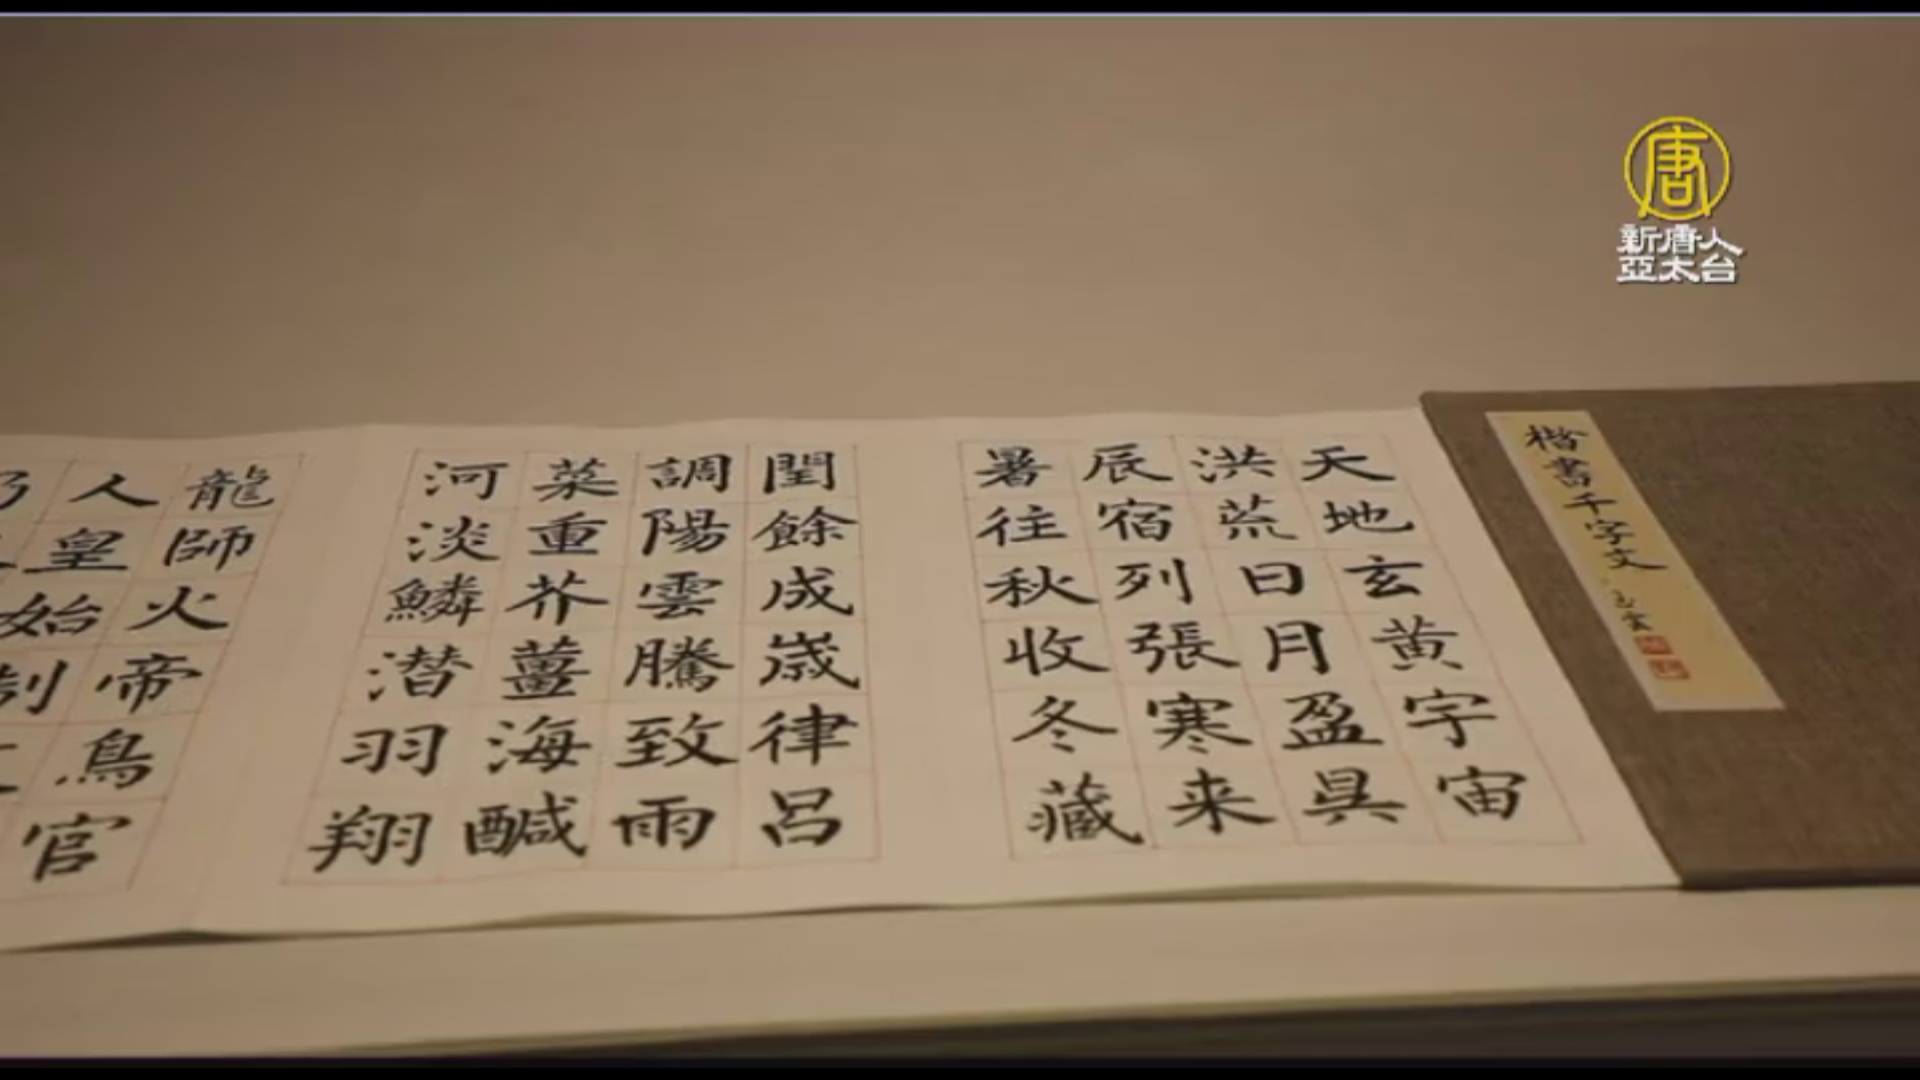 新唐人
亞太台
楷書千字文
天地玄黄宇宙
洪荒日月盈昃
辰宿列張寒来
暑往秋收冬藏
閏餘成歲律呂
調陽雲騰致雨
菜重芥薑海醎
河淡鱗潜羽翔
龍師火帝鳥官
人皇始制